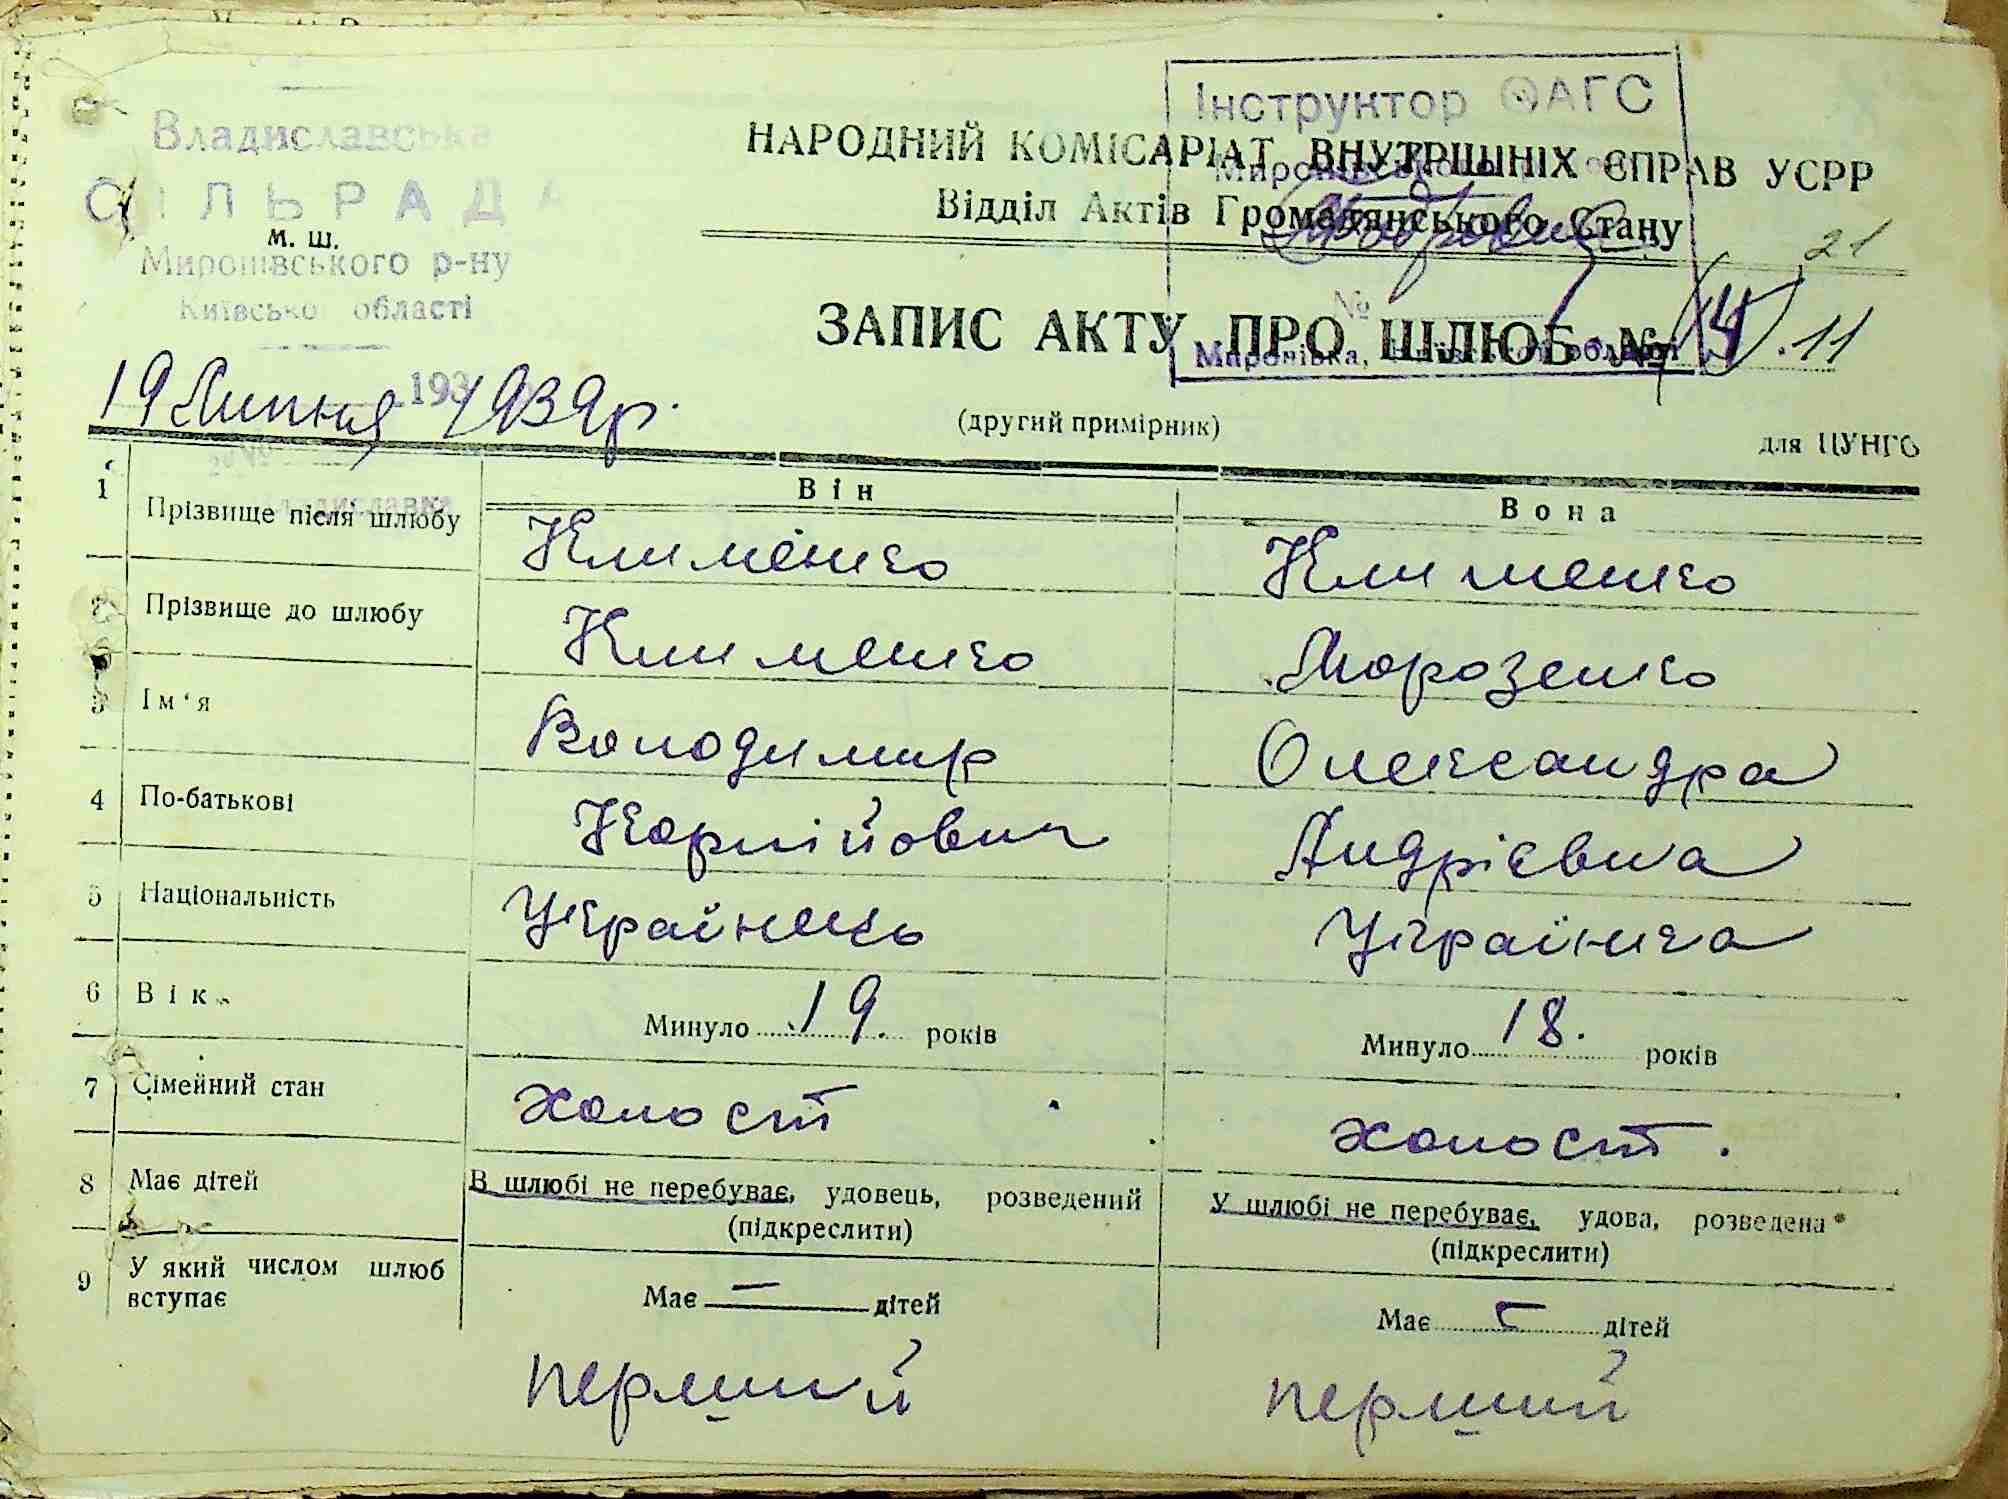 Владиславська
СІЛЬРАДА
м. ш.
Миронівського р-ну
Київської області
Інструктор ОАГС
НАРОДНИЙ КОМІСАРІАТ ВНУТРІШНІХ СПРАВ УСРР
Відділ Актів Громадянського Стану
21
№
ЗАПИС АКТУ ПРО ШЛЮБ № 14 .11
Миронівка, Київської області
19 Липня 193 1939 р.
(другий примірник)
для ЦУНГО
Владиславка
Він
Вона
1 Прізвище після шлюбу Клименко Клименко
2 Прізвище до шлюбу Клименко Морозенко
3 Ім'я Володимир Олександра
4 По-батькові Корнійович Андрієвна
5 Національність Українець Українка
6 Вік Минуло 19. років Минуло 18. років
7 Сімейний стан холост холост.
8 Має дітей В шлюбі не перебуває, удовець, розведений У шлюбі не перебуває, удова, розведена
(підкреслити) (підкреслити)
9 У який числом шлюб вступає Має — дітей Має — дітей
перший перший